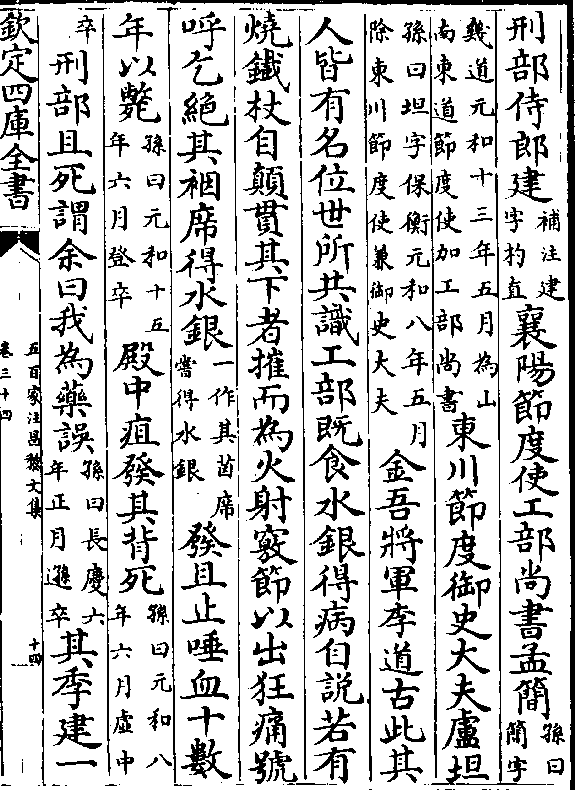 刑部侍郎建補注建字杓直襄陽節度使工部尚書孟簡孫曰簡字
幾道元和十三年五月為山南東道節度使加工部尚書東川節度御史大夫盧坦
孫曰坦字保衡元和八年五月除東川節度使兼御史大夫金吾將軍李道古此其
人皆有名位世所共識工部既食水銀得病自説若有
燒鐡杖自顛貫其下者摧而為火射竅節以出狂痛號
呼乞絶其裀席得水銀一作其茵席嘗得水銀發且止唾血十數
年以斃孫曰元和十五年六月登卒殿中疽發其背死孫曰元和八年六月虛中
卒刑部且死謂余曰我為藥誤孫曰長慶六年正月遜卒其季建一
欽定四庫全書
五百家注昌黎文集
卷三十四
十四